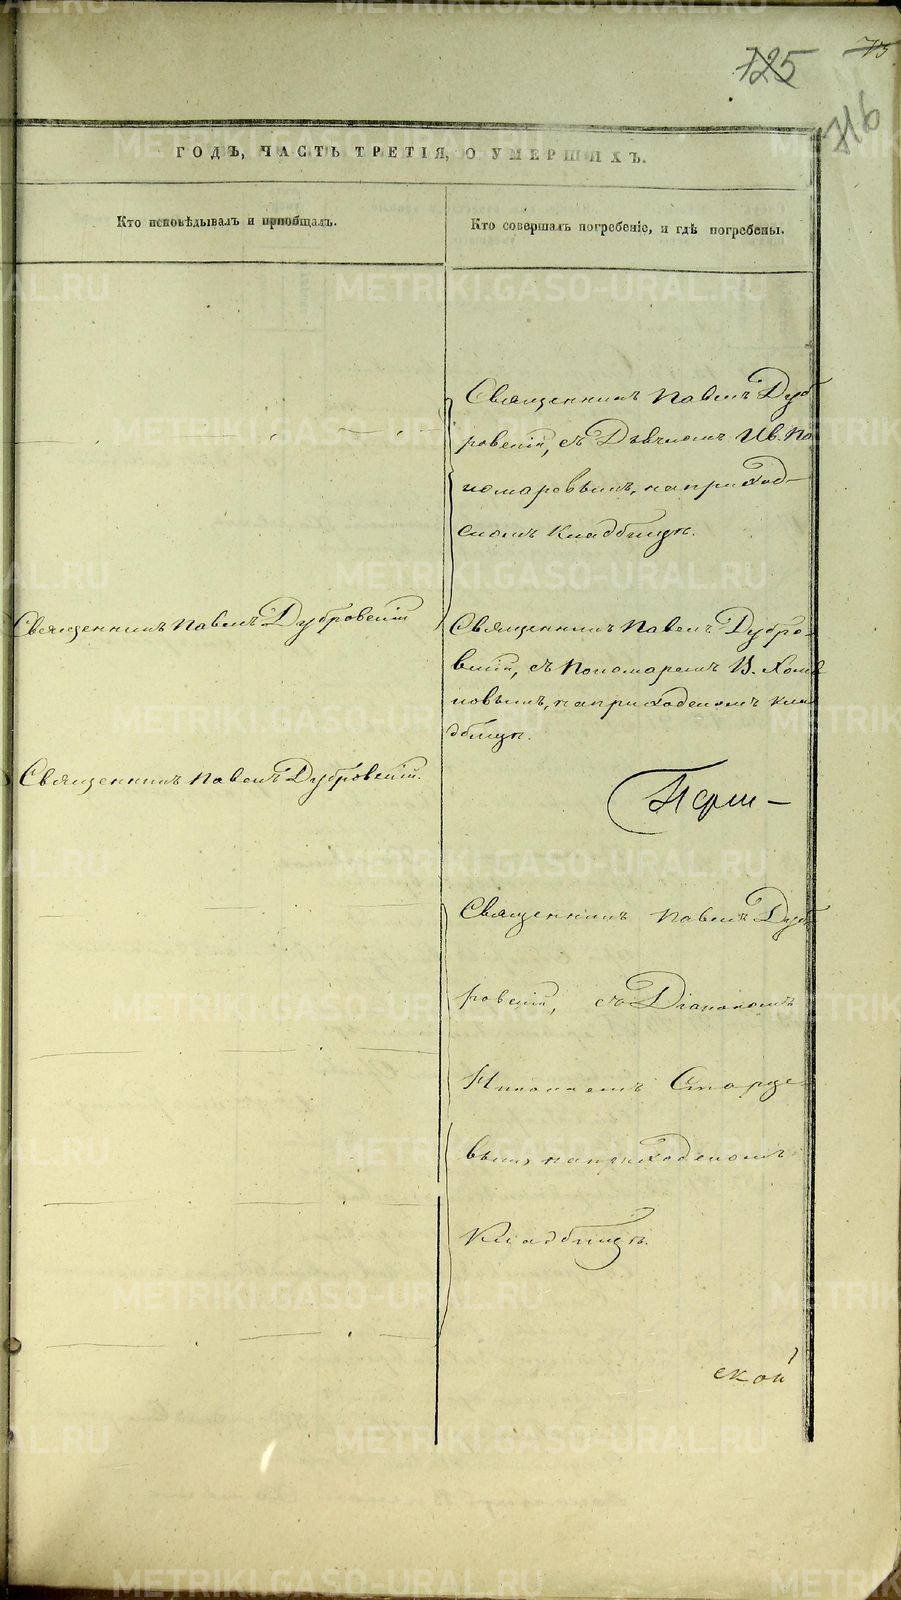 73
725
716
ГОДЪ, ЧАСТЬ ТРЕТІЯ, О УМЕРШИХЪ.
Кто исповѣдывалъ и пріобщалъ.
Кто совершалъ погребеніе, и гдѣ погребены.
Священникъ Павелъ Дуб
ровскій, съ Дьячкомъ Ив. По
номаревымъ, на приход-
скомъ кладбищѣ.
Священникъ Павелъ Дубровскій
Священникъ Павелъ Дубро-
вскій, съ Пономаремъ В.
новымъ, на приходскомъ кла
дбищѣ.
Священникъ Павелъ Дубровскій.
Перм-
Священникъ Павелъ Дуб
ровскій, съ Діакономъ
Николаемъ Старце-
вымъ на приходскомъ
Кладбищѣ.
ской
METRIKI.GASO-URAL.RU